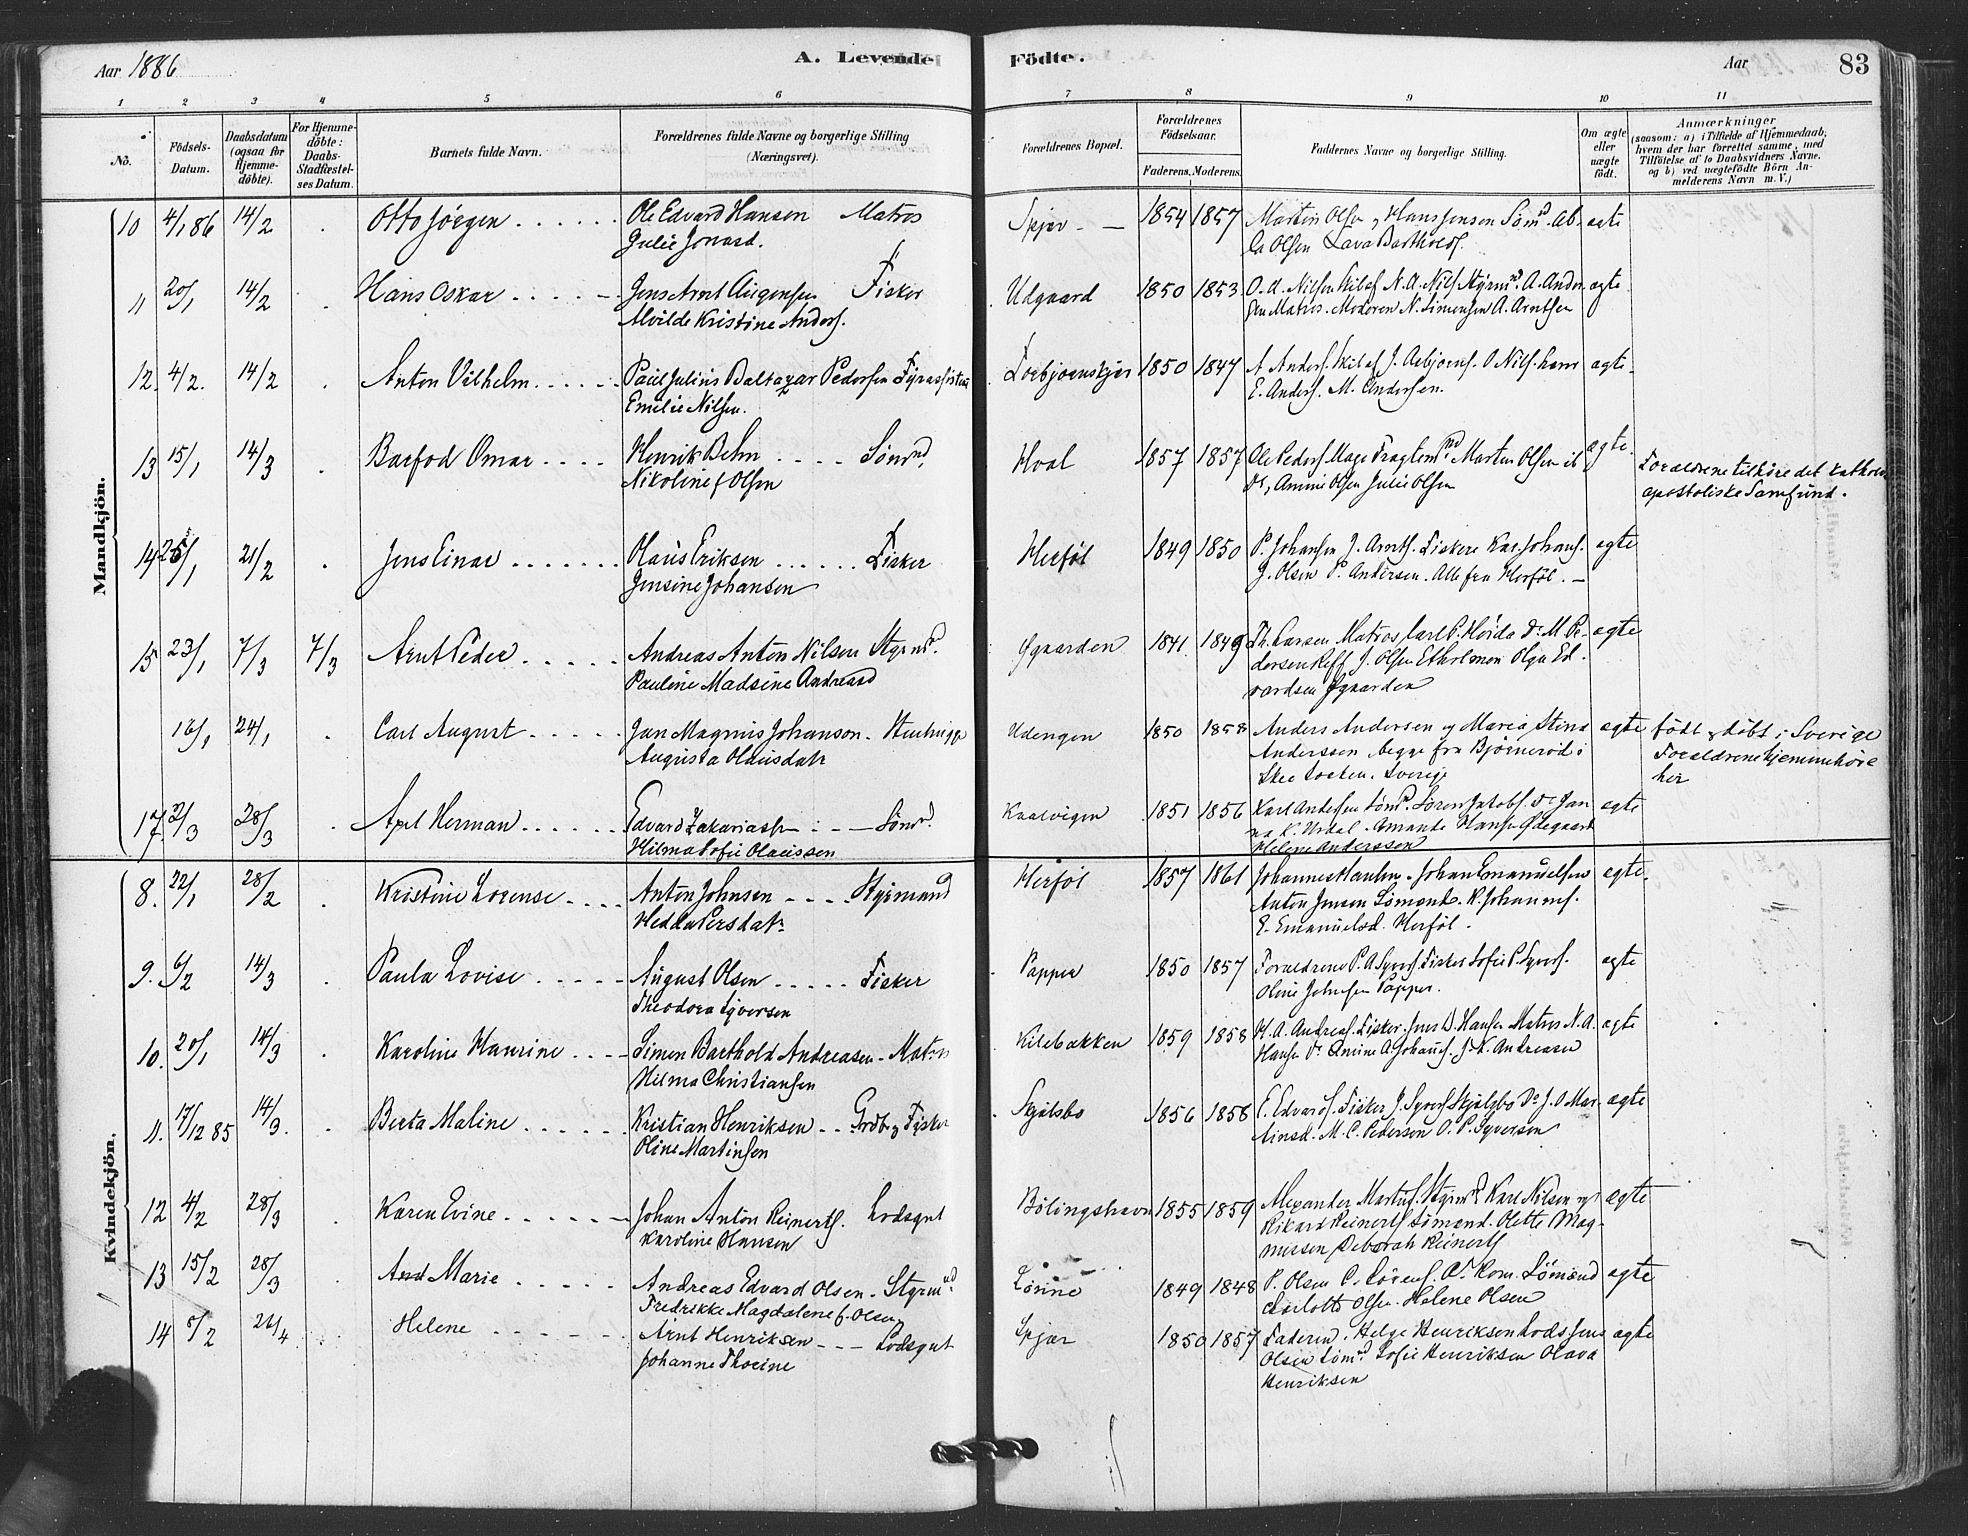 Aar 1886 A. Levende Födte. Aar 83
1 2 3 4 5 6 7 8 9 10 11
No. Födsels-Datum. Daabsdatum (ogsaa for Hjemme-döbte). For Hjemme-döbte: Daabs-Stadfæstel-ses Datum. Barnets fulde Navn. Forældrenes fulde Navne og borgerlige Stilling (Næringsvei). Forældrenes Bopæl. Forældrenes Födselsaar. Faderens. Moderens. Faddernes Navne og borgerlige Stilling. Om ægte eller uægte födt. Anmærkninger (saasom: a) i Tilfælde af Hjemmedaab, hvem der har forrettet samme, med Tilföielse af to Daabsvidners Navne. og b) ved uægtefödte Börn An-melderens Navn m. V.)
Mandkjön.
10 4/1 86 14/2 . Otto Jörgen Ole Edvard Hansen Matros Spjær 1854 1857 Martin Olsen og Hans Jensen Sömd. ægte
Julie Jonasd. Olsen Lava Barthold.
11 20/1 14/2 . Hans Oskar Jens Arnt Fisker Udgaard 1850 1853 O. A. Nilsen N. A. Nils. Styrmd. A. Ander- ægte
Alvilde Kristine Anders. sen Matros. Moderen N. Simonsen A. Arntsen
12. 4/2. 14/2 . Anton Vilhelm Paul Julius Baltazar Pedersen Fyrassistent Torbjørnskjær 1850 1847 A Anders. J. Asbjørns. O Nils. ægte
Emilie Nilsen. E. Anders. M. Andersen.
13 15/1 14/3 . Barfod Omar Henrik Behn Sömd. Hval 1857 1857 Ole Peders. Martin Olsen ægte
Nikoline f. Olsen Amine Olsen Julie Olsen
Forældrene tilhöre det katholsk
apostoliske Samfund.
14 25/1 21/2 . Jens Einar Olaus Eriksen Fisker Herføl 1849 1850 P. Johansen J. Arnts. Fiskere Kar. Johans. ægte
Jensine Johansen J. Olsen P. Andersen. Alle fra Herföl.
15 23/1 7/3 7/3 Arnt Peder Andreas Anton Nilsen Styrmd. Øgaarden 1841 1849 Th. Larsen Matros Carl P. Høida Do. M. Pe- ægte
Pauline Madsine Andreasd dersen J. Olsen Etholmen Olga Ed-
vardsen Øgaarden
16/1 24/1 . Carl August Jan Magnus Johanson Stenhugge Udengen 1850 1858 Anders Andersen og Maria Stina ægte født og døbt i Sverige
Augusta Olausdatr Anderssen begge fra Bjørnerød i Forældrene hjemmehöre
Skee Socken. Sverige her
17. 2/3 28/3 . Axel Herman Edvard Zakariassen Sömd. Kaalvigen 1851 1856 Karl Andersen Sömd. Søren Jakobs. Do Jan- ægte
Hilma Sofie Olaussen na K. Urdal. Amanda Hans. Ødegaard
Helene Anderssen
Kvindekjön.
8. 22/1 28/2 . Kristine Lorense Anton Johnsen Styrmand Herføl 1857 1861 Johannes Johan Emanuelsen ægte.
Hedda Persdatr Anton Jensen Sømænd. K. Johannes.
E. Emanuelsd. Herføl.
9. 6/2 14/3 . Paula Lovise August Olsen Fisker Papper 1850 1857 Forældrene P. A. Syvers. Fisker Sofie P. Syvers. ægte
Theodora Syversen Oline Johnsen Papper.
10. 20/1 14/3 . Karoline Maurine Simen Barthold Andreasen Matros Kilebakken 1859 1858 H. A. Andreas. Fisker. Jens D. Hansen Matros N. A. ægte
Hilma Christiansen Hansen Do. Amine A. Johans. J. K. Andreasen
11. 17/12 85 14/3 . Berta Maline Kristian Henriksen Grdb. og Fisker Skjelsbo 1856 1858 E. Edvards. Fisker J. Syvers. Skjelsbo Do J. O Mar- ægte
Oline Martinsen tinsd. M. C. Pedersen O. P. Syversen
12 4/2 28/3 . Karen Evine Johan Anton Reinerts. Lodsgut Bölingshavn 1855 1859 Alexander Martins. Styrmd Karl Nilsen og ægte
Karoline Hansen Rikard Reinerts. Sømænd. Olette Mag-
nussen Deborah Reinerts.
13 15/2 28/3 . Marie Andreas Edvard Olsen Styrmd Lønne 1849 1848 P. Olsen C. Sörens. Sömænd ægte
Fredrikke Magdalene f. Olsen Charlotte Olsen. Helene Olsen
14 5/2 26/4 . Helene Arnt Henriksen Lodsgut Spjær 1850 1857 Faderen. Helge Henriksen Lods Jens ægte
Johanne Thorine Olsen Sømd. Sofie Henriksen Olava
Henriksen